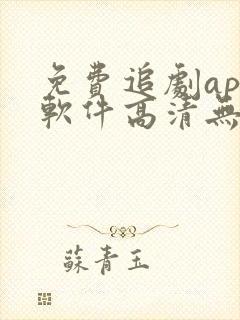 免費追劇ap
軟件高清無
蘇青玉